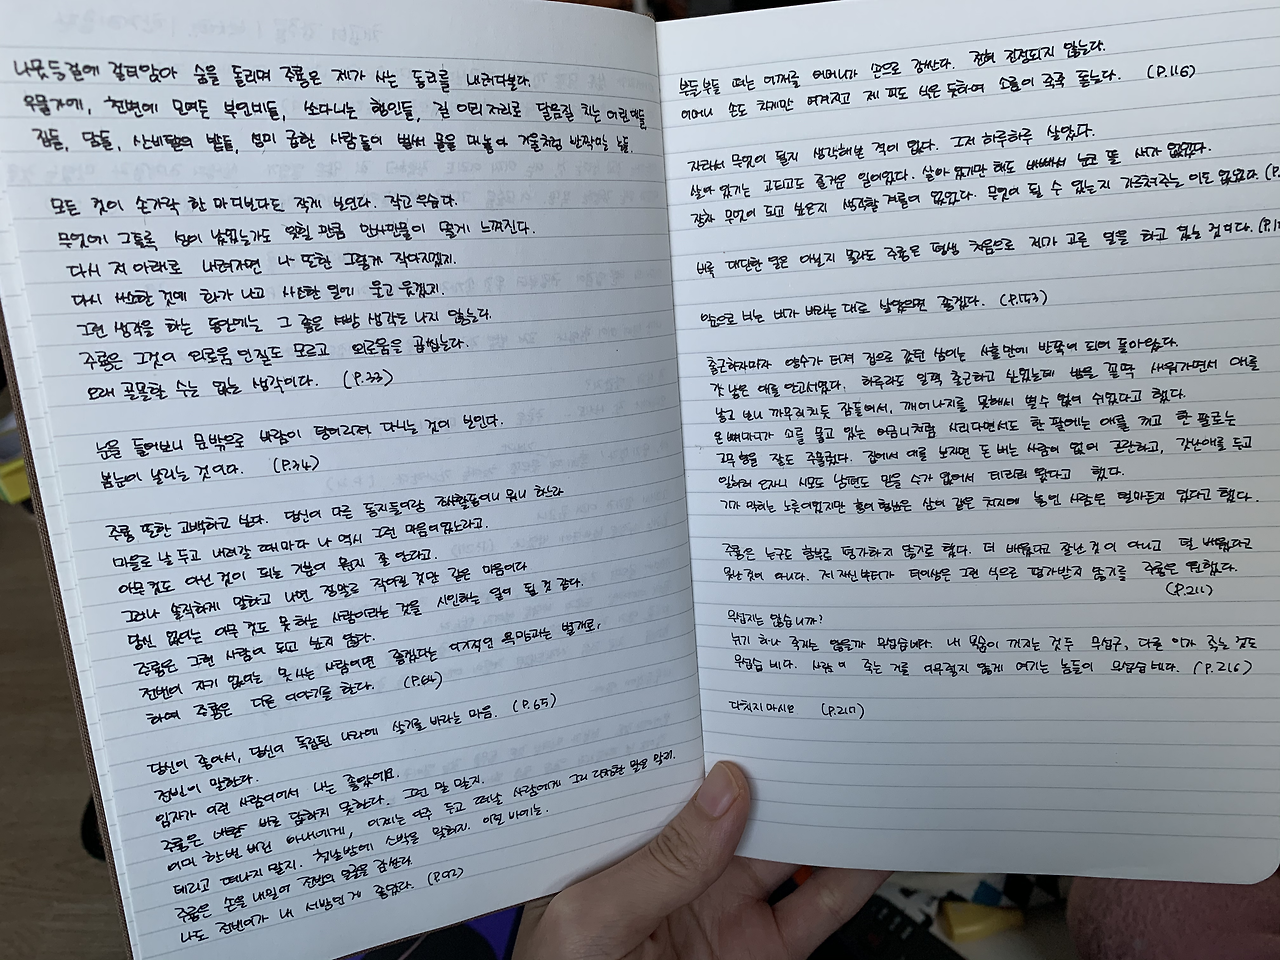 나뭇등걸에 걸터앉아 숨을 돌리며 주룡은 제가 사는 동리를 내려다본다.
우물가에, 천변에 모여든 부인네들, 쏘다니는 행인들, 길 어리 자리로 달음질 치는 어린애들,
집들, 담들, 산비탈의 밭들, 성미 급한 사람들이 벌써 물을 대놓아 거울처럼 반짝이는 논들.
모든 것이 손가락 한 마디보다도 작게 보인다. 작고 우습다.
무엇에 그토록 성이 났었는가도 잊힐 만큼 만사만물이 떨게 느껴진다.
다시 저 아래로 내려가면 나 또한 그렇게 작아지겠지.
다시 써소한 것에 화가 나고 사소한 일에 울고 웃겠지.
그런 생각을 하는 동안에는 그 좋은 서방 생각도 나지 않는다.
주룡은 그것이 외로움인 줄도 모르고 외로움을 곱씹는다.
오래 골몰할 수는 없는 생각이다. (P.33)
눈을 들어보니 문밖으로 바람이 덩어리져 다니는 것이 보인다.
봄눈이 날리는 것이다. (P.34)
주룡 또한 고백하고 싶다. 당신이 다른 동지들이랑 정사활동이니 뭐니 하느라
마을로 날 두고 내려갈 때마다 나 역시 그런 마음이었노라고.
아무것도 아닌 것이 되는 기분이 뭔지 잘 안다고.
그러나 솔직하게 말하고 나면 정말로 작아질 것만 같은 마음이다
당신 없이는 아무 것도 못 하는 사람이라는 것을 시인하는 일이 될 것 같다.
주룡은 그런 사람이 되고 싶지 않다.
전빈이 자기 없이는 못 사는 사람이면 좋겠다는 이기적인 욕망과는 별개로,
하여 주룡은 다른 이야기를 한다. (P.64)
당신이 좋아서, 당신이 독립된 나라에 살기를 바라는 마음. (P.65)
전빈이 말한다.
임자가 이런 사람이어서 나는 좋았어요.
주룡은 바로 답하지 못한다. 그런 말 말지.
이미 한번 버린 아내에게, 이제는 아주 두고 떠날 사람에게 그리 다정한 말은 말지.
데리고 떠나지 말지. 첫날밤에 소박을 맞히지. 이럴 바에는.
주룡은 손을 내밀어 전빈의 얼굴을 감싼다
나도 전빈이가 내 서방인 게 좋았다. (P.92)
부들부들 떠는 어깨를 어머니가 손으로 감싼다. 전혀 진정되지 않는다.
어머니 손도 차게만 여겨지고 제 피도 식은 듯하여 소름이 죽죽 돋는다. (P.116)
자라서 무엇이 될지 생각해본 적이 없다. 그저 하루하루 살았다.
살아 있기는 고되고도 즐거운 일이었다. 살아 있기만 해도 바빠서 눈코 뜰 새가 없었다.
장차 무엇이 되고 싶은지 생각할 겨를이 없었다. 무엇이 될 수 있는지 가르쳐주는 이도 없었다. (P.
비록 대단한 일은 아닐지 몰라도 주룡은 평생 처음으로 제가 고른 일을 하고 있는 것이다. (P.1
앞으로 비는 비가 바라는 대로 날았으면 좋겠다. (P.153)
출근하자마자 양수가 터져 집으로 갔던 삼이는 사흘 만에 반쪽이 되어 돌아왔다.
갓 낳은 애를 안고서였다. 하루라도 일찍 출근하고 싶었는데 밤을 꼴딱 새워가면서 애를
낳고 보니 까무러치듯 잠들어서, 깨어나지를 못해서 별수 없이 쉬었다고 했다.
온 뼈마디가 소를 물고 있는 어금니처럼 시리다면서도 한 팔에는 애를 끼고 한 팔로는
고무 형을 잘도 주물렀다. 집에서 애를 보자면 돈 버는 사람이 없어 곤란하고, 갓난애를 두고
일하러 오자니 시모도 남편도 믿을 수가 없어서 데리러 왔다고 했다.
기가 막히는 노릇이었지만 홍이 형님은 삼이 같은 처지에 놓인 사람은 얼마든지 있다고 했다.
주룡은 누구도 함부로 평가하지 않기로 했다. 더 배웠다고 잘난 것이 아니고 덜 배웠다고
못난 것이 아니다. 저 자신부터가 더이상은 그런 식으로 평가받지 않기를 주룡은 원했다.
(P.211)
무섭지는 않습니까?
뉘기 하나 죽지는 않을까 무섭습네다. 내 목숨이 꺼지는 것두 무섭구, 다른 이가 죽는 것도
무섭습네다. 사람이 죽는 거를 아무렇지 않게 여기는 놈들이 무섭습네다. (P.216)
다치지 마시요 (P.217)